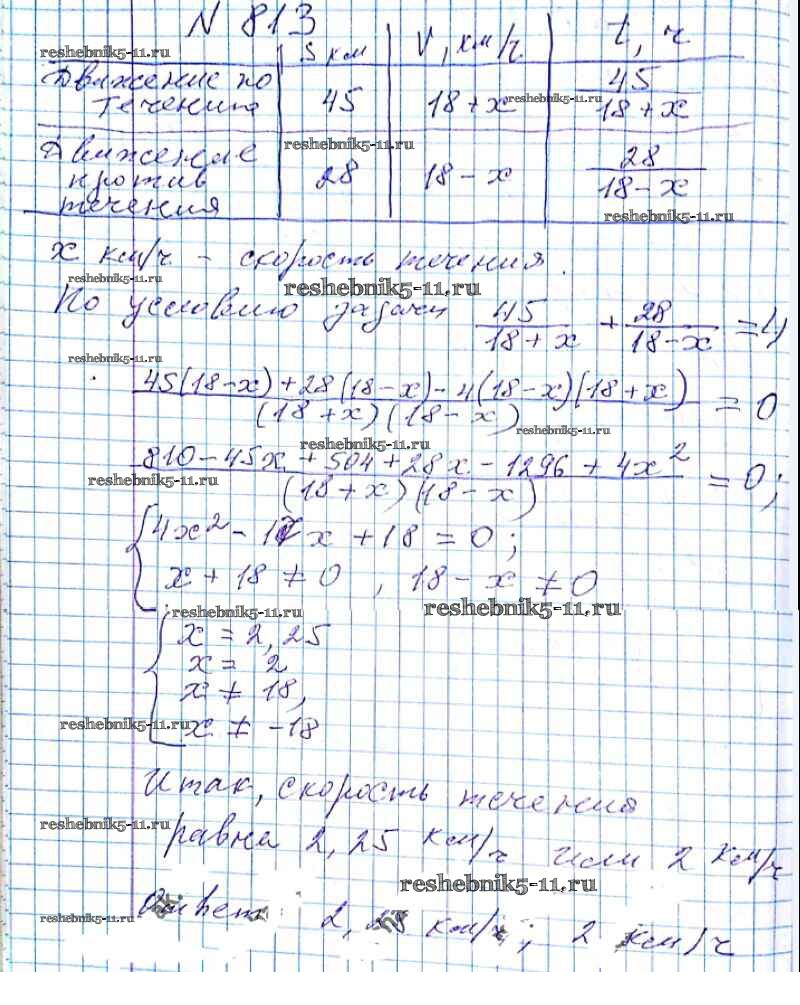 N 813
reshebnik5-11.ru
S км V, км/ч t, ч
Движение по течению 45 18 + x 45/(18 + x)
reshebnik5-11.ru
reshebnik5-11.ru
Движение против течения 28 18 - x 28/(18 - x)
reshebnik5-11.ru
x км/ч - скорость течения.
reshebnik5-11.ru
reshebnik5-11.ru
По условию задачи 45/(18 + x) + 28/(18 - x) = 4
reshebnik5-11.ru
(45(18-x) + 28(18-x) - 4(18-x)(18+x))/((18+x)(18-x)) = 0
reshebnik5-11.ru
reshebnik5-11.ru
(810 - 45x + 504 + 28x - 1296 + 4x²)/((18+x)(18-x)) = 0;
reshebnik5-11.ru
4x² - 17x + 18 = 0;
x + 18 ≠ 0, 18 - x ≠ 0
reshebnik5-11.ru
reshebnik5-11.ru
x = 2,25
x = 2
x ≠ 18,
x ≠ -18
reshebnik5-11.ru
Итак, скорость течения
равна 2,25 км/ч или 2 км/ч
reshebnik5-11.ru
reshebnik5-11.ru
Ответ: км/ч; 2 км/ч
reshebnik5-11.ru